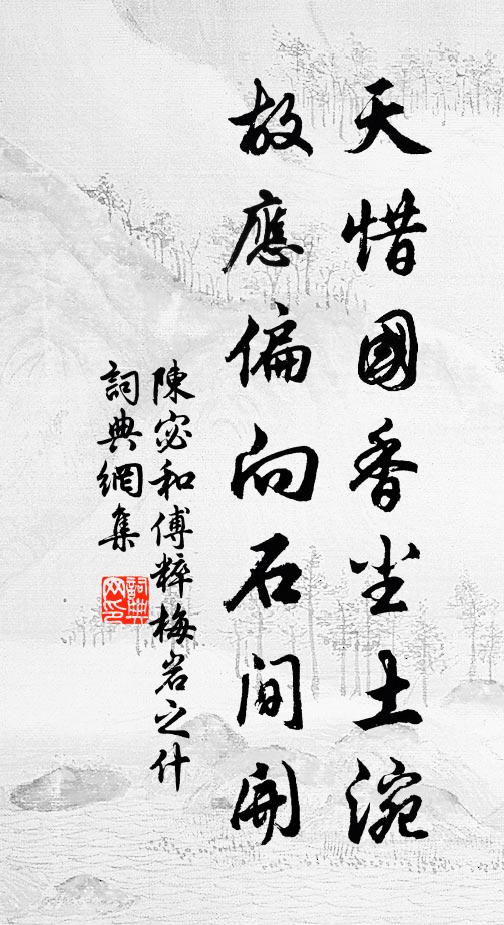 天惜國香尘土涴
故應偏向石間開
陳宓和傅粹梅岩之什
詞典網集
詞典
网印